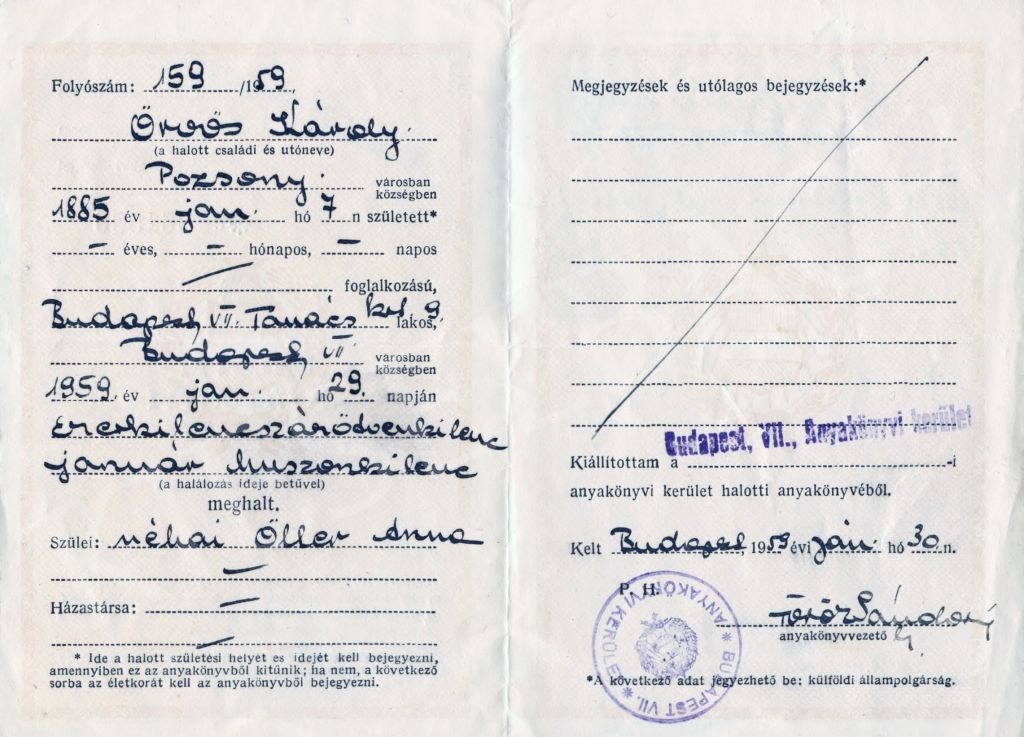 Folyószám: 159 /1959,
Örvös Károly.
(a halott családi és utóneve)
Pozsony. városban
községben
1885 év jan. hó 7 n született*
— éves, — hónapos, — napos
foglalkozású,
Budapest, VII. Tanács krt 9. lakos,
Budapest, VII városban
községben
1959. év jan. hó 29. napján
Ezerkilencszázötvenkilenc
január huszonkilenc
(a halálozás ideje betűvel)
meghalt.
Szülei: néhai Őller Anna
—
Házastársa: —
—
* Ide a halott születési helyét es idejét kell bejegyezni,
amennyiben ez az anyakönyvből kitűnik; ha nem, a következő
sorba az életkorát kell az anyakönyvből bejegyezni.
Megjegyzések és utólagos bejegyzések:*
Budapest, VII., Anyakönyvi kerület
Kiállítottam a -i
anyakönyvi kerület halotti anyakönyvéből.
Kelt Budapest, 1959 évi ján. hó 30 n.
P. H.
ANYAKÖNYVI KERÜLET * BUDAPEST VII. *
Török Sándorné
anyakönyvvezető
*A következő adat jegyezhető be: külföldi állampolgárság.